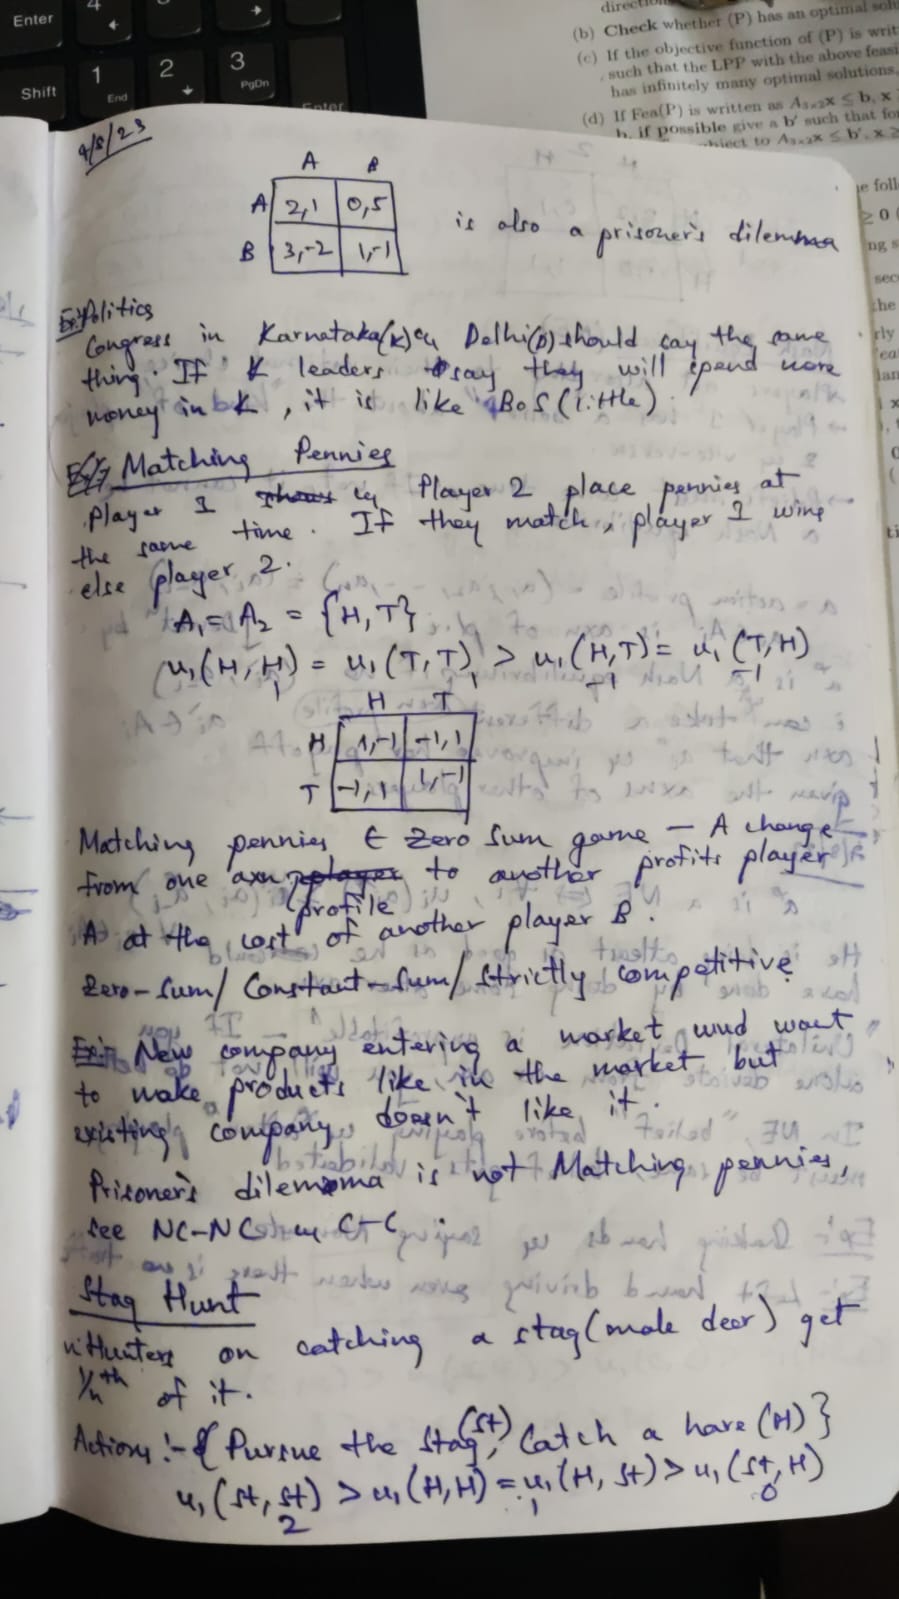 Enter
4
Shift
1
End
2
3
PgDn
Enter
direction
(b) Check whether (P) has an optimal solu
(c) If the objective function of (P) is writ
such that the LPP with the above feasi
has infinitely many optimal solutions,
(d) If Fea(P) is written as A₃ₓ₂x ≤ b, x
b, if possible give a b' such that for
bject to A₃ₓ₂x ≤ b', x ≥
e foll
≥ 0
ng s
sec
the
rly
4/8/23
A B
A 2,1 0,5
B 3,-2 1,-1
is also a prisoner's dilemma
Ex:- Politics
Congress in Karnataka(K) & Delhi(D) should say the same
thing. If K leaders say they will spend more
money in K, it is like BoS (little)
Matching Pennies
Player 1 & Player 2 place pennies at
the same time. If they match, player 1 wins
else player 2.
A₁ = A₂ = {H, T}
u₁(H, H) = u₁(T, T) > u₁(H, T) = u₁(T, H)
1 1 -1 -1
H T
H 1,-1 -1,1
T -1,1 1,-1
Matching pennies ∈ Zero Sum game – A change
from one axn player to another profits player
profile
A at the cost of another player B.
Zero-Sum/ Constant-Sum/ Strictly competitive
Ex:- New company entering a market wud want
to make products like in the market but
existing company doesn't like it.
Prisoner's dilemma is not Matching pennies,
See NC-NC & C-C.
Stag Hunt
n Hunters on catching a stag (male deer) get
1/nth of it.
Actions :- { Pursue the Stag (St), Catch a hare (H) }
u₁(St, St) > u₁(H, H) = u₁(H, St) > u₁(St, H)
2 1 0